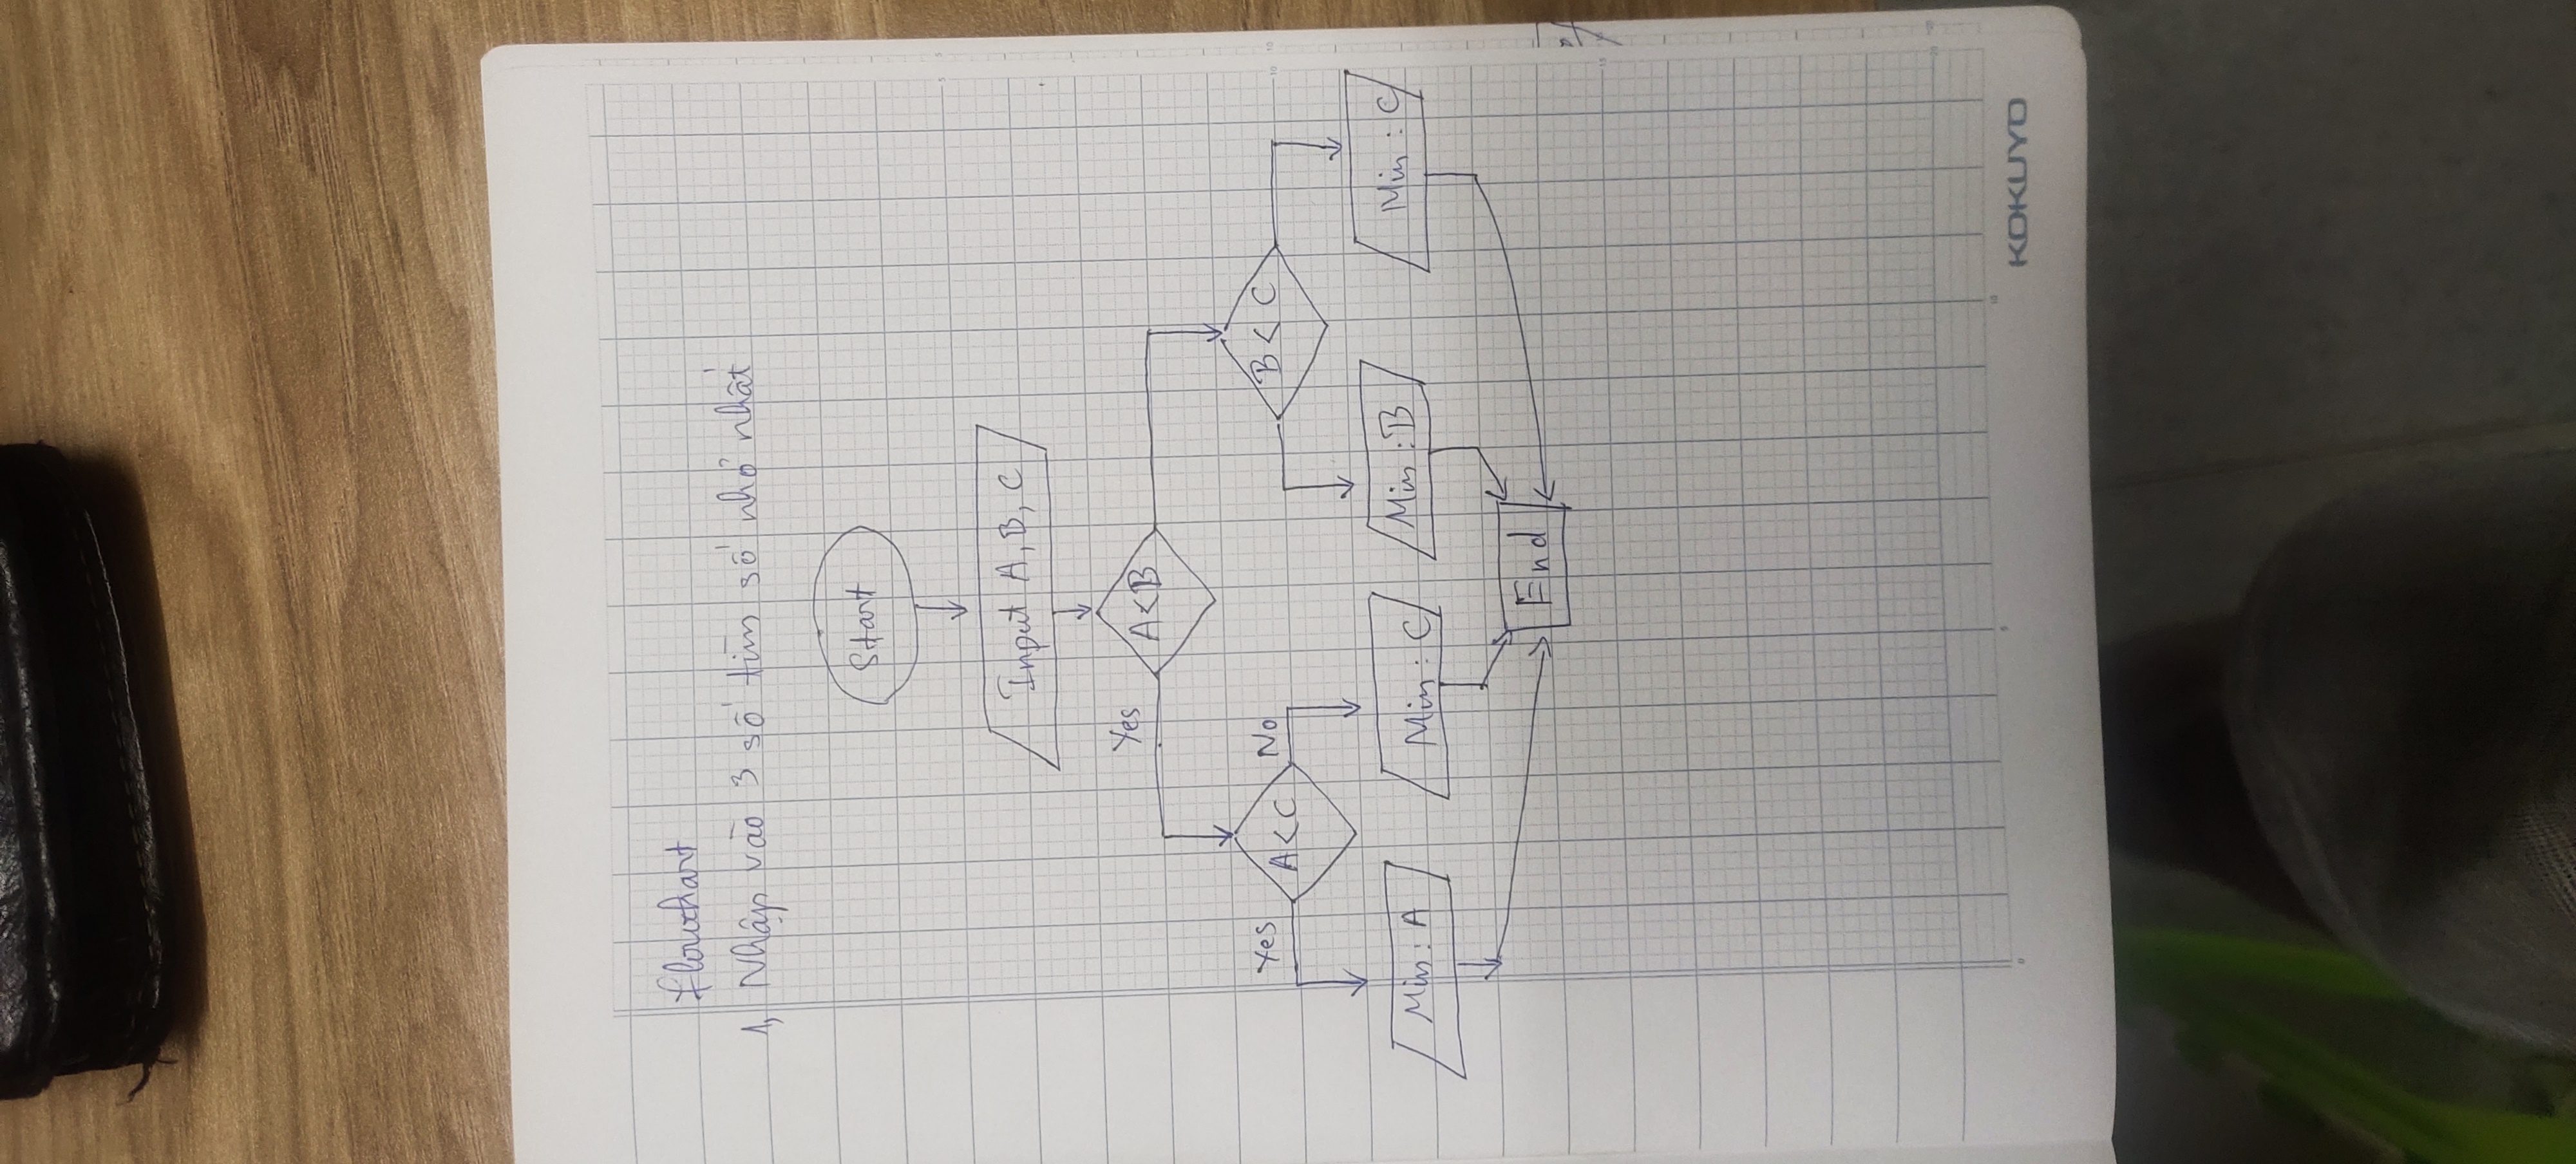 Flowchart
1, Nhập vào 3 số tìm số nhỏ nhất
Start
Input A, B, C
Yes
A<B
Yes
A<C
No
B< C
Min: A
Min: C
Min: B
Min: C
End
5
5
10
10
15
20
0
5
10
KOKUYO